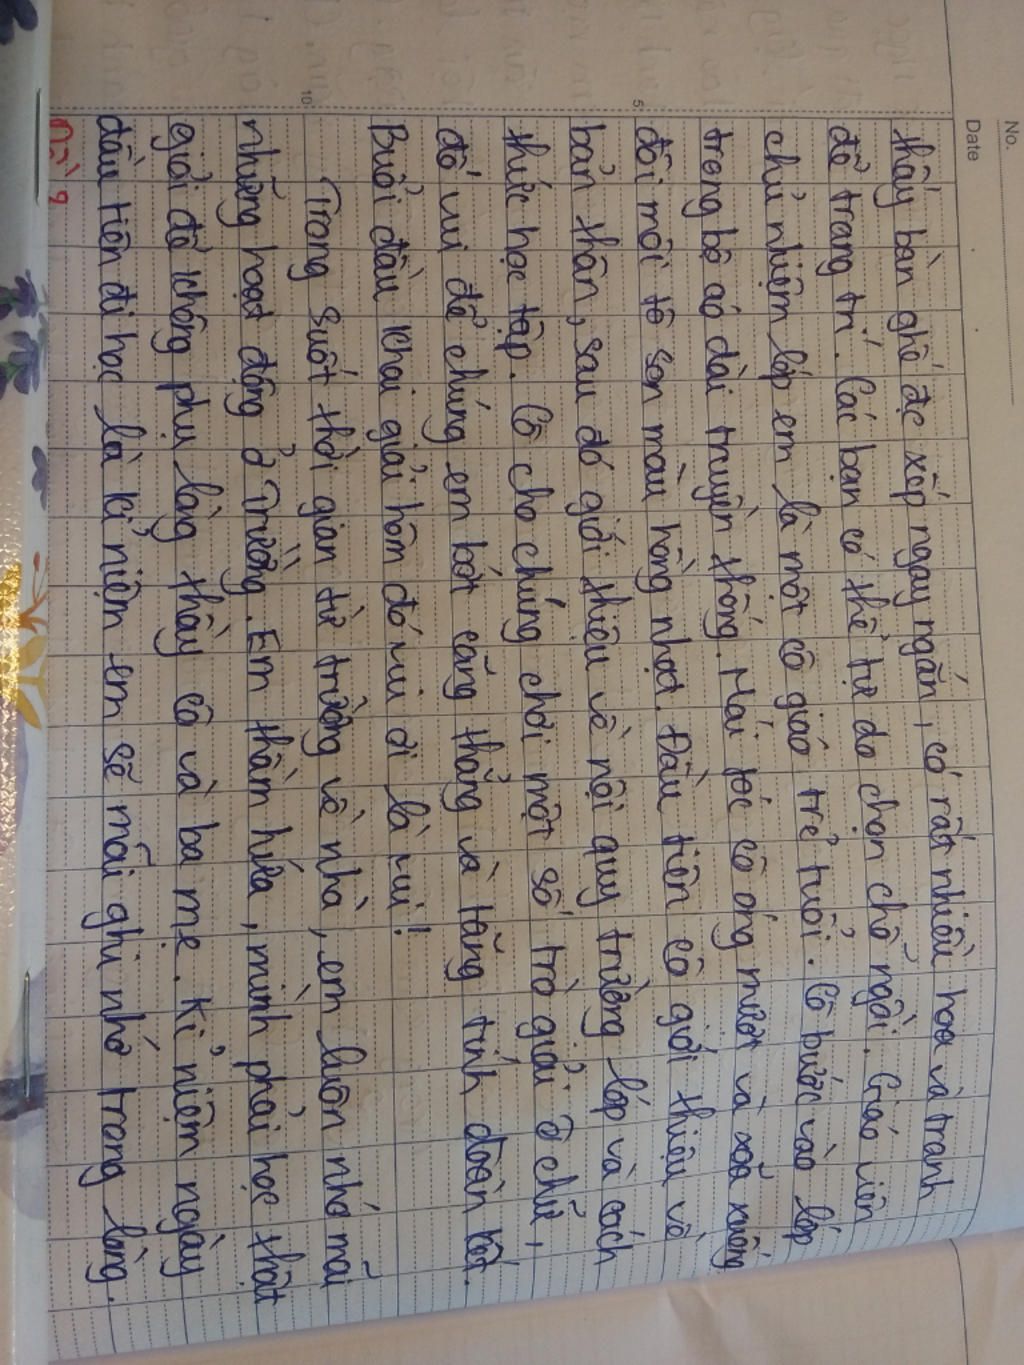 No.
Date
thấy bàn ghế đc xếp ngay ngắn, có rất nhiều hoa và tranh
để trang trí. Các bạn có thể tự do chọn chỗ ngồi. Giáo viên
chủ nhiệm lớp em là một cô giáo trẻ tuổi. Cô bước vào lớp
trong bộ áo dài truyền thống. Mái tóc cô óng mượt và xõa xuống
đôi môi tô son màu hồng nhạt. Đầu tiên cô giới thiệu về
bản thân, sau đó giới thiệu về nội quy trường lớp và cách
thức học tập. Cô cho chúng chơi một số trò giải ô chữ,
đố vui để chúng em bớt căng thẳng và tăng tính đoàn kết.
Buổi đầu khai giải hôm đó vui ơi là vui!
Trong suốt thời gian từ trường về nhà, em luôn nhớ mãi
những hoạt động ở Trường. Em thầm hứa, mình phải học thật
giỏi để không phụ lòng thầy cô và ba mẹ. Kỉ niệm ngày
đầu tiên đi học là kỉ niệm em sẽ mãi ghi nhớ trong lòng.
5
10